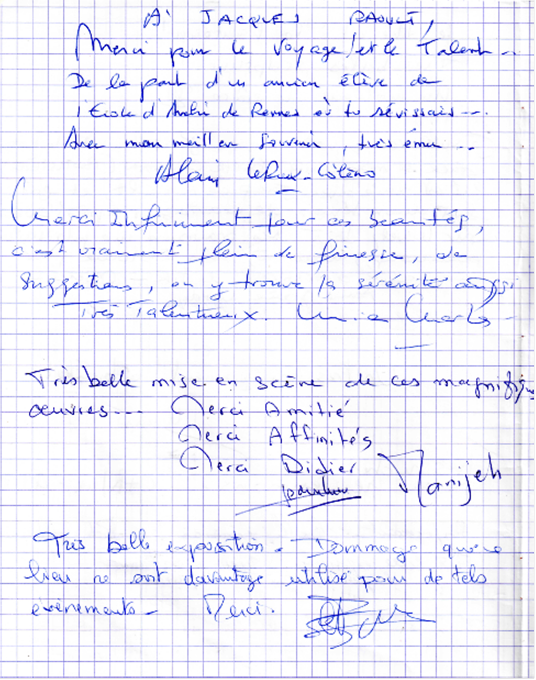 A' JACQUES RAOULT,
Merci pour le voyage! et le Talent...
De la part d'un ancien élève de
l'Ecole d'Archi de Rennes où tu sévissais...
Avec mon meilleur souvenir, très ému...
Alain
Merci Infiniment pour ces beautés,
c'est vraiment plein de finesse, de
suggestions, on y trouve la sérénité aussi
Très Talentueux.
Très belle mise en scène de ces magnifiques
œuvres... Merci Amitié
Merci Affinités
Merci Didier
Manijeh
Très belle exposition - Dommage que ce
lieu ne soit davantage utilisé pour de tels
évènements - Merci.